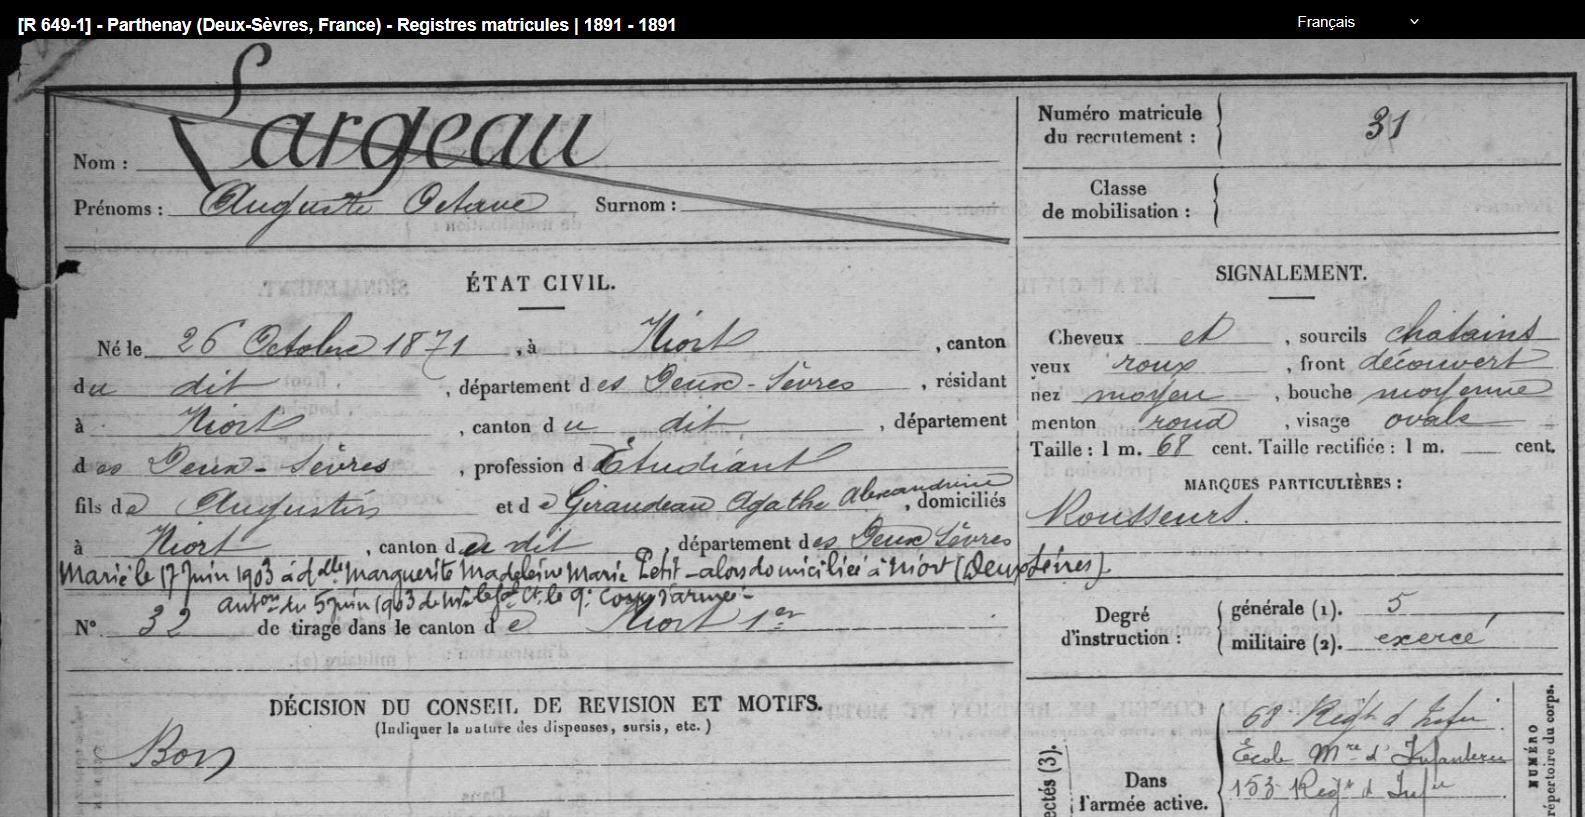 [R 649-1] - Parthenay (Deux-Sèvres, France) - Registres matricules | 1891 - 1891
Français
Nom : Largeau
Prénoms : Auguste Octave Surnom :
Numéro matricule
du recrutement : 31
Classe
de mobilisation :
ÉTAT CIVIL.
Né le 26 Octobre 1871, à Niort, canton
du dit, département des Deux-Sèvres, résidant
à Niort, canton du dit, département
des Deux-Sèvres, profession d'Étudiant
fils de Augustin et de Giraudeau Agathe Alexandrine, domiciliés
à Niort, canton du dit, département des Deux Sèvres
Marié le 17 Juin 1903 à dlle Marguerite Madeleine Marie Petit - alors domiciliée à Niort (Deux Sèvres).
auton du 5 juin 1903 de Mr le Gal Ct le 9e Corps d'armée -
N° 32 de tirage dans le canton de Niort 1er
DÉCISION DU CONSEIL DE REVISION ET MOTIFS.
(Indiquer la nature des dispenses, sursis, etc.)
Bon
SIGNALEMENT.
Cheveux et, sourcils chatains
yeux roux, front découvert
nez moyen, bouche moyenne
menton rond, visage ovale
Taille : 1 m. 68 cent. Taille rectifiée : 1 m. cent.
MARQUES PARTICULIÈRES :
Rousseurs.
Degré
d'instruction :
générale (1). 5
militaire (2). exercé
ectés (3).
Dans
l'armée active.
68 Régt d'Infie
École Mre d'Infanterie
153 Régt d'Infie
NUMÉRO
répertoire du corps.